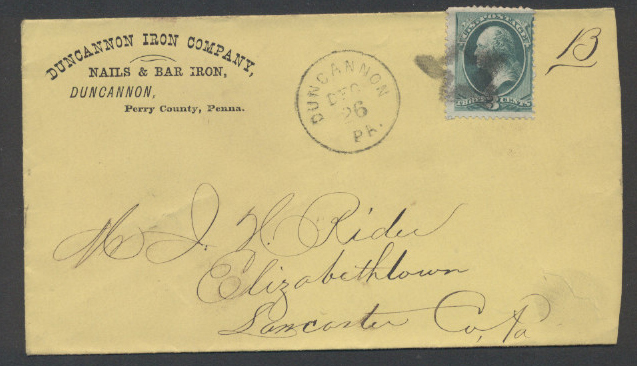 DUNCANNON IRON COMPANY,
NAILS & BAR IRON,
DUNCANNON,
Perry County, Penna.
DUNCANNON
DEC
26
PA.
U.S. POSTAGE
THREE 3 CENTS
B
Mr J. H. Rider
Elizabethtown
Lancaster Co, Pa